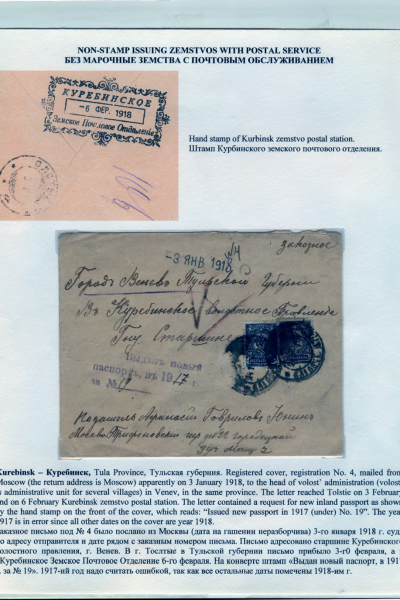 NON-STAMP ISSUING ZEMSTVOS WITH POSTAL SERVICE
БЕЗ МАРОЧНЫЕ ЗЕМСТВА С ПОЧТОВЫМ ОБСЛУЖИВАНИЕМ
КУРЕБИНСКОЕ
-6 ФЕР. 1918
Земское Почтовое Отдѣленіе
Hand stamp of Kurbinsk zemstvo postal station.
Штамп Курбинского земского почтового отделения.
-3 ЯНВ 1918
№4
заказное
Городъ Веневъ Тульской Губерніи
Въ Куребинское волостное Правленіе
Старшине
Выданъ новый
паспортъ, въ 1917 г.
за № 19
Kurebinsk – Куребинск, Tula Province, Тульская губерния. Registered cover, registration No. 4, mailed from
Moscow (the return address is Moscow) apparently on 3 January 1918, to the head of volost` administration (volost
is administrative unit for several villages) in Venev, in the same province. The letter reached Tolstie on 3 February
and on 6 February Kurebinsk zemstvo postal station. The letter contained a request for new inland passport as shown
by the hand stamp on the front of the cover, which reads: “Issued new passport in 1917 (under) No. 19”. The year
1917 is in error since all other dates on the cover are year 1918.
заказное письмо под № 4 было послано из Москвы (дата на гашении неразборчива) 3-го января 1918 г. судя
по адресу отправителя и дате рядом с заказным номером письма. Письмо адресовано старшине Куребинского
волостного правления, г. Венев. В г. Тослтые в Тульской губернии письмо прибыло 3-г0 февраля, а
Куребинское Земское Почтовое Отделение 6-го февраля. На конверте штамп «Выдан новый паспорт, в 1917
г. за № 19». 1917-ий год надо считать ошибкой, так как все остальные даты помечены 1918-им г.